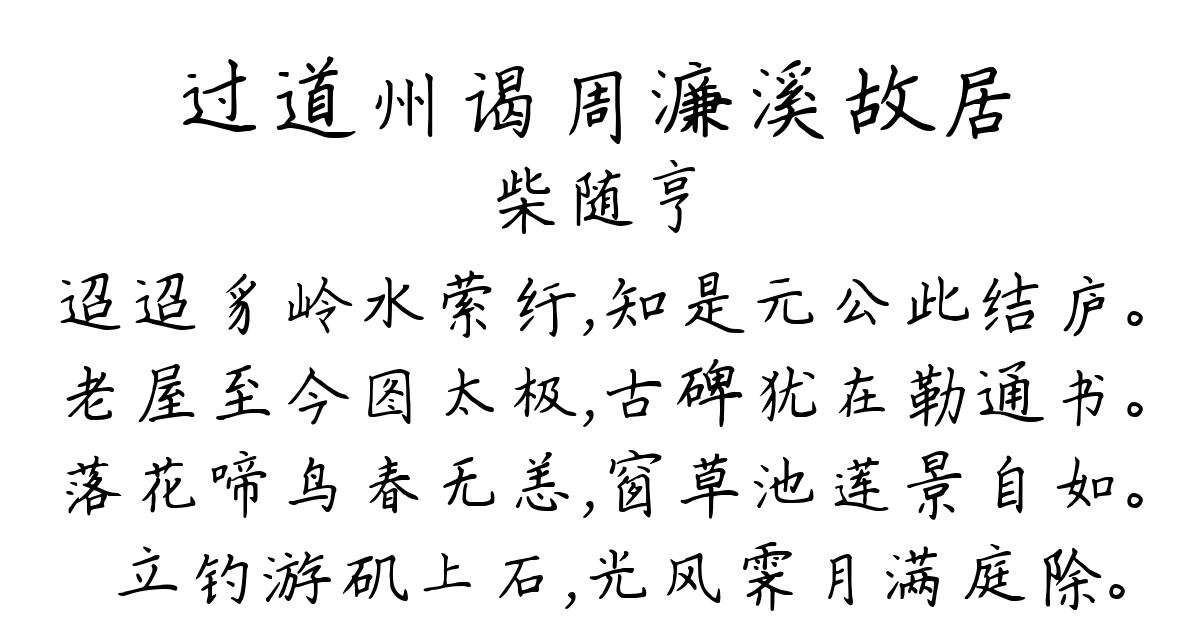 过道州谒周濂溪故居
柴随亨
迢迢豸岭水萦纡,知是元公此结庐。
老屋至今图太极,古碑犹在勒通书。
落花啼鸟春无恙,窗草池莲景自如。
立钓游矶上石,光风霁月满庭除。